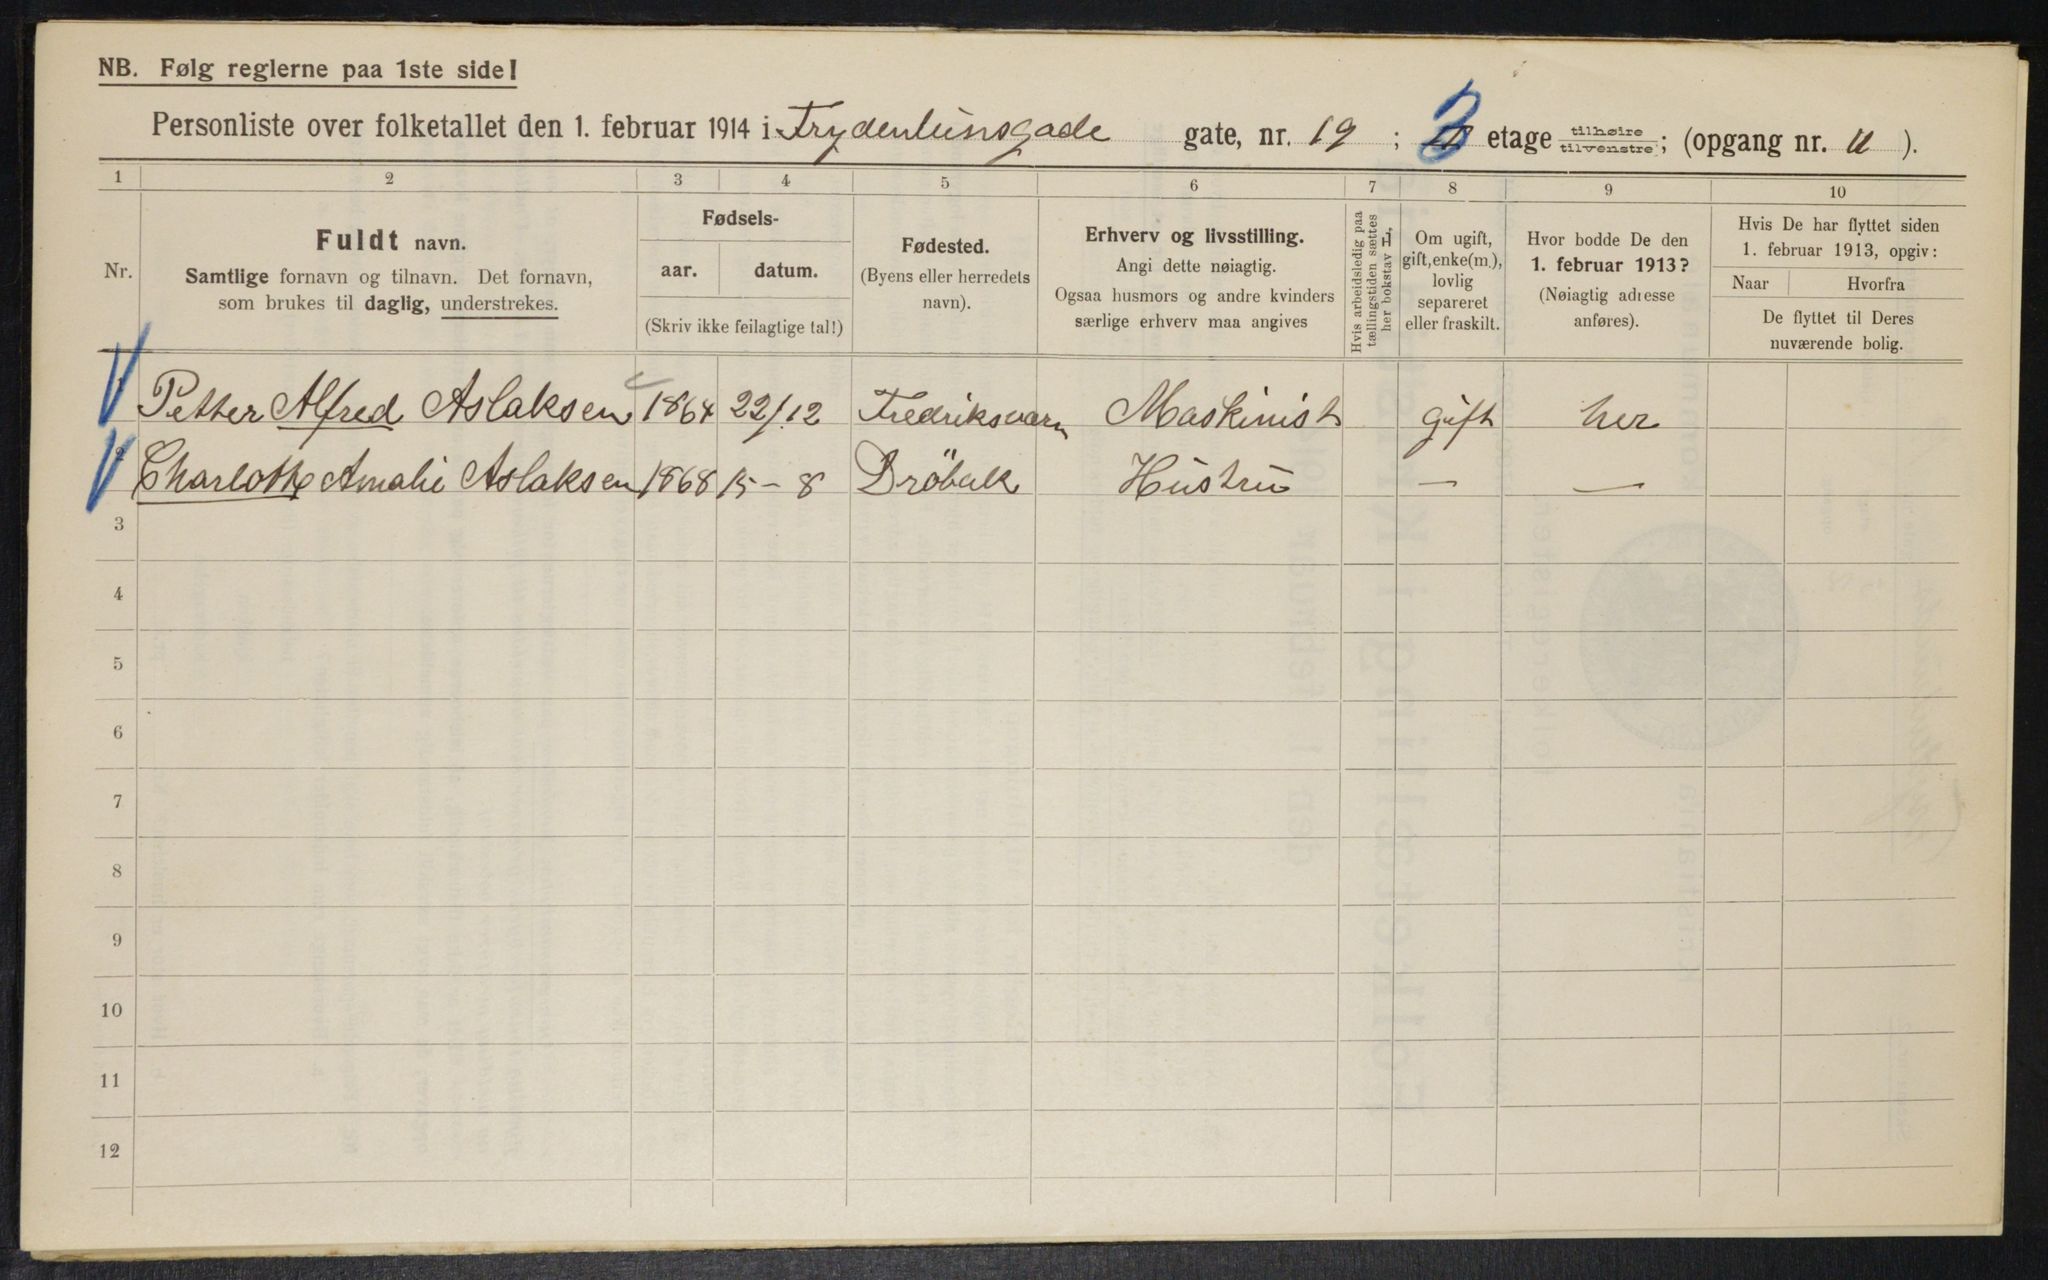 NB. Følg reglerne paa 1ste side!
Personliste over folketallet den 1. februar 1914 i Frydenlunsgade gate, nr. 19 ; 3 etage tilhøire tilvenstre; (opgang nr. ).
1 2 3 4 5 6 7 8 9 10
Nr.
Fuldt navn.
Samtlige fornavn og tilnavn. Det fornavn,
som brukes til daglig, understrekes.
Fødsels-
aar. datum.
(Skriv ikke feilagtige tal!)
Fødested.
(Byens eller herredets
navn).
Erhverv og livsstilling.
Angi dette nøiagtig.
Ogsaa husmors og andre kvinders
særlige erhverv maa angives
Hvis arbeidsledig paa
tællingstiden sættes
her bokstav L.
Om ugift,
gift, enke(m.),
lovlig
separeret
eller fraskilt.
Hvor bodde De den
1. februar 1913?
(Nøiagtig adresse
anføres).
Hvis De har flyttet siden
1. februar 1913, opgiv:
Naar Hvorfra
De flyttet til Deres
nuværende bolig.
1 Petter Alfred Aslaksen 1864 22/12 Fredriksværn Maskinist gift her
2 Charlotte Amalie Aslaksen 1868 15-8 Dröbak Hustru — —
3
4
5
6
7
8
9
10
11
12